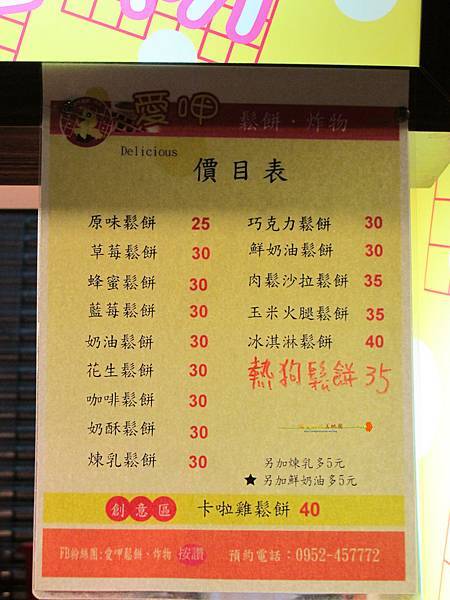 愛呷
鬆餅·炸物
Delicious
價目表
原味鬆餅 25
草莓鬆餅 30
蜂蜜鬆餅 30
藍莓鬆餅 30
奶油鬆餅 30
花生鬆餅 30
咖啡鬆餅 30
奶酥鬆餅 30
煉乳鬆餅 30
巧克力鬆餅 30
鮮奶油鬆餅 30
肉鬆沙拉鬆餅 35
玉米火腿鬆餅 35
冰淇淋鬆餅 40
熱狗鬆餅 35
另加煉乳多5元
★ 另加鮮奶油多5元
創意區 卡啦雞鬆餅 40
FB粉絲團:愛呷鬆餅、炸物 按讚 預約電話:0952-457772